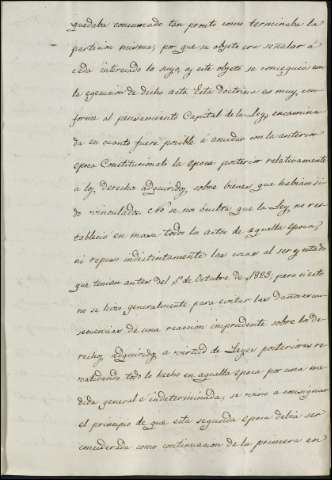 quedaba consumado tan pronto como terminaba la
particion misma; por que su objeto era señalar á
cada interesado lo suyo, y este objeto se conseguia con
la egecucion de dicho acto. Esta Doctrina es muy con
forme al pensamiento Capital de la Ley, encamina
da en cuanto fuere posible á anudar con la anterior
epoca Constitucional la epoca posterior relativamente
a los derechos adquiridos sobre bienes que habian si
do vinculados. No se nos oculta que la Ley no res
tablecio en masa todos los actos de aquella epoca,
ni repuso indistintamente las cosas al ser y estado
que tenian antes del 1º de Octubre de 1823; pero si esto
no se hizo generalmente para evitar las dañosas con
secuencias de una reaccion imprudente sobre los de
rechos adquiridos a virtud de Leyes posteriores re
validando todo lo hecho en aquella epoca por una me
dida general é indeterminada, se vino a consignar
el principio de que esta segunda epoca debia ser
considerada como continuacion de la primera en